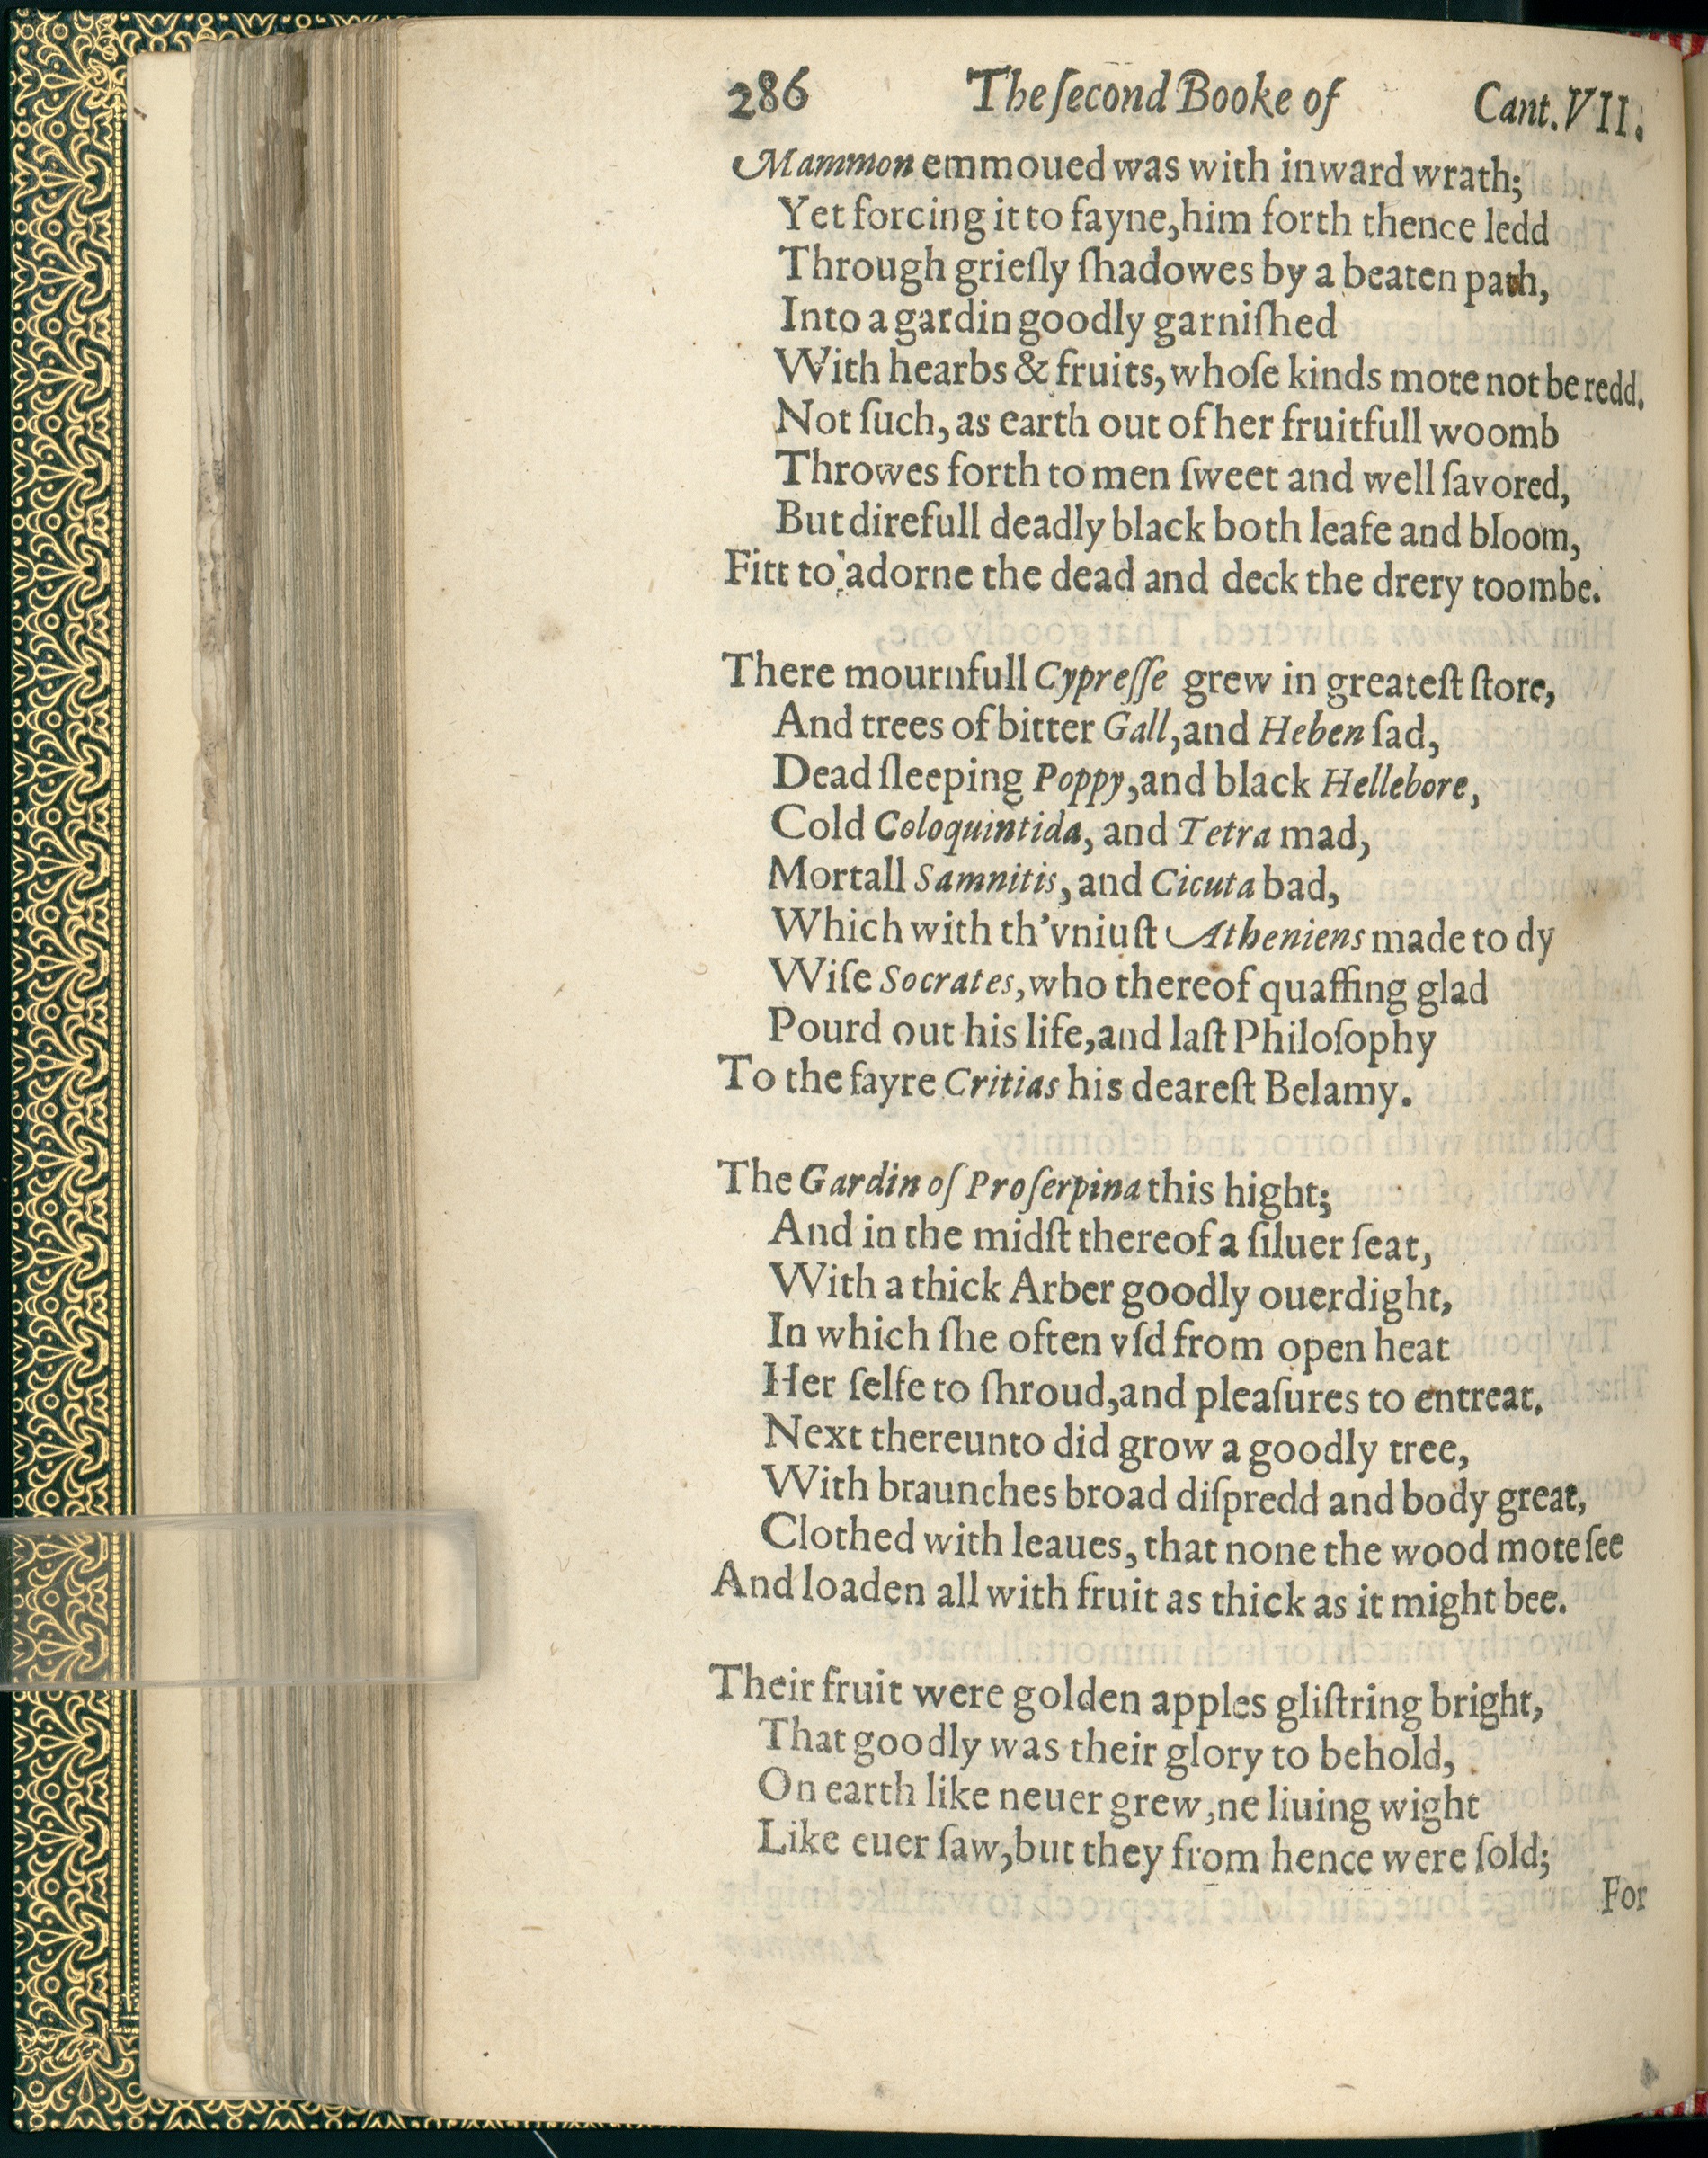 286 The ſecond Booke of Cant. VII.
Mammon emmoued was with inward wrath;
Yet forcing it to fayne, him forth thence ledd
Through grieſly ſhadowes by a beaten path,
Into a gardin goodly garniſhed
With hearbs & fruits, whoſe kinds mote not be redd.
Not ſuch, as earth out of her fruitfull woomb
Throwes forth to men ſweet and well ſavored,
But direfull deadly black both leafe and bloom,
Fitt to'adorne the dead and deck the drery toombe.
There mournfull Cypreſſe grew in greateſt ſtore,
And trees of bitter Gall, and Heben ſad,
Dead ſleeping Poppy, and black Hellebore,
Cold Coloquintida, and Tetra mad,
Mortall Samnitis, and Cicuta bad,
Which with th'vniuſt Atheniens made to dy
Wiſe Socrates, who thereof quaffing glad
Pourd out his life, and laſt Philoſophy
To the fayre Critias his deareſt Belamy.
The Gardin of Proſerpina this hight;
And in the midſt thereof a ſiluer ſeat,
With a thick Arber goodly ouerdight,
In which ſhe often vſd from open heat
Her ſelfe to ſhroud, and pleaſures to entreat.
Next thereunto did grow a goodly tree,
With braunches broad diſpredd and body great,
Clothed with leaues, that none the wood mote ſee
And loaden all with fruit as thick as it might bee.
Their fruit were golden apples gliſtring bright,
That goodly was their glory to behold,
On earth like neuer grew, ne liuing wight
Like euer ſaw, but they from hence were ſold;
For